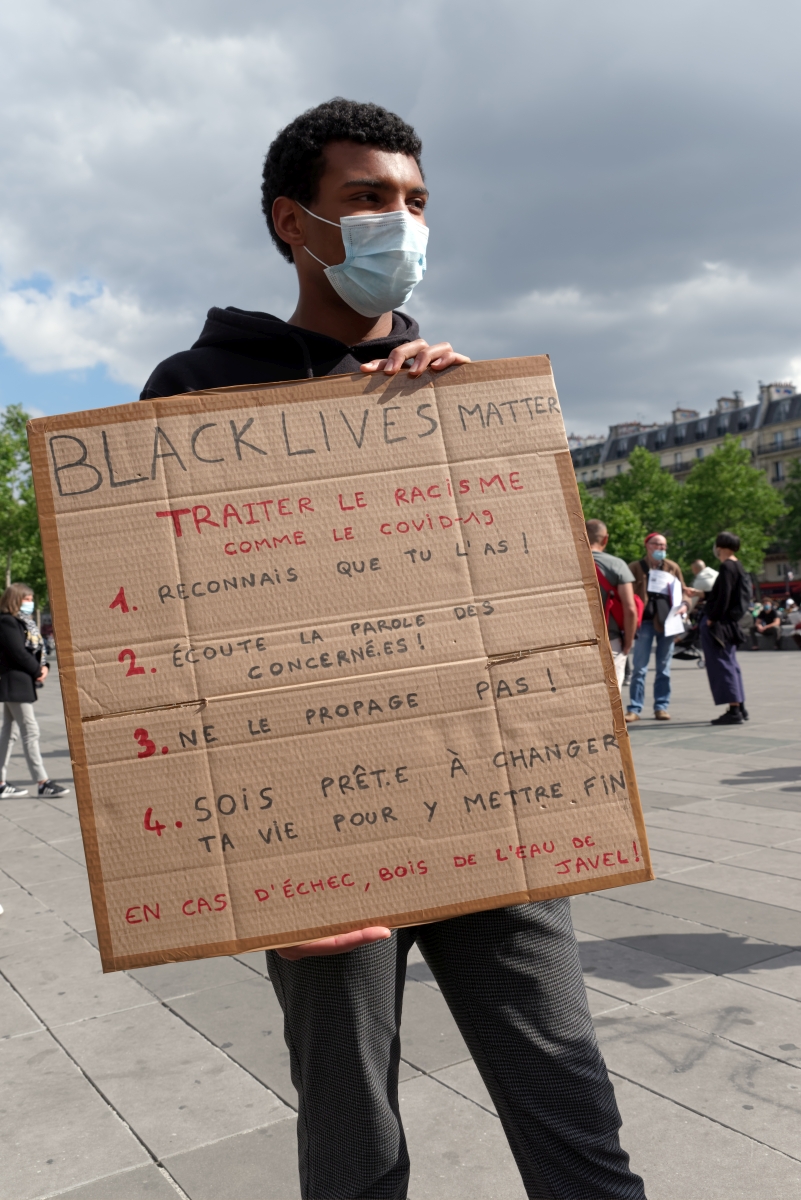 BLACK LIVES MATTER
TRAITER LE RACISME
COMME LE COVID-19
1. RECONNAIS QUE TU L'AS !
2. ÉCOUTE LA PAROLE DES
CONCERNÉ.ES !
3. NE LE PROPAGE PAS !
4. SOIS PRÊT.E À CHANGER
TA VIE POUR Y METTRE FIN
EN CAS D'ÉCHEC, BOIS DE L'EAU DE
JAVEL !